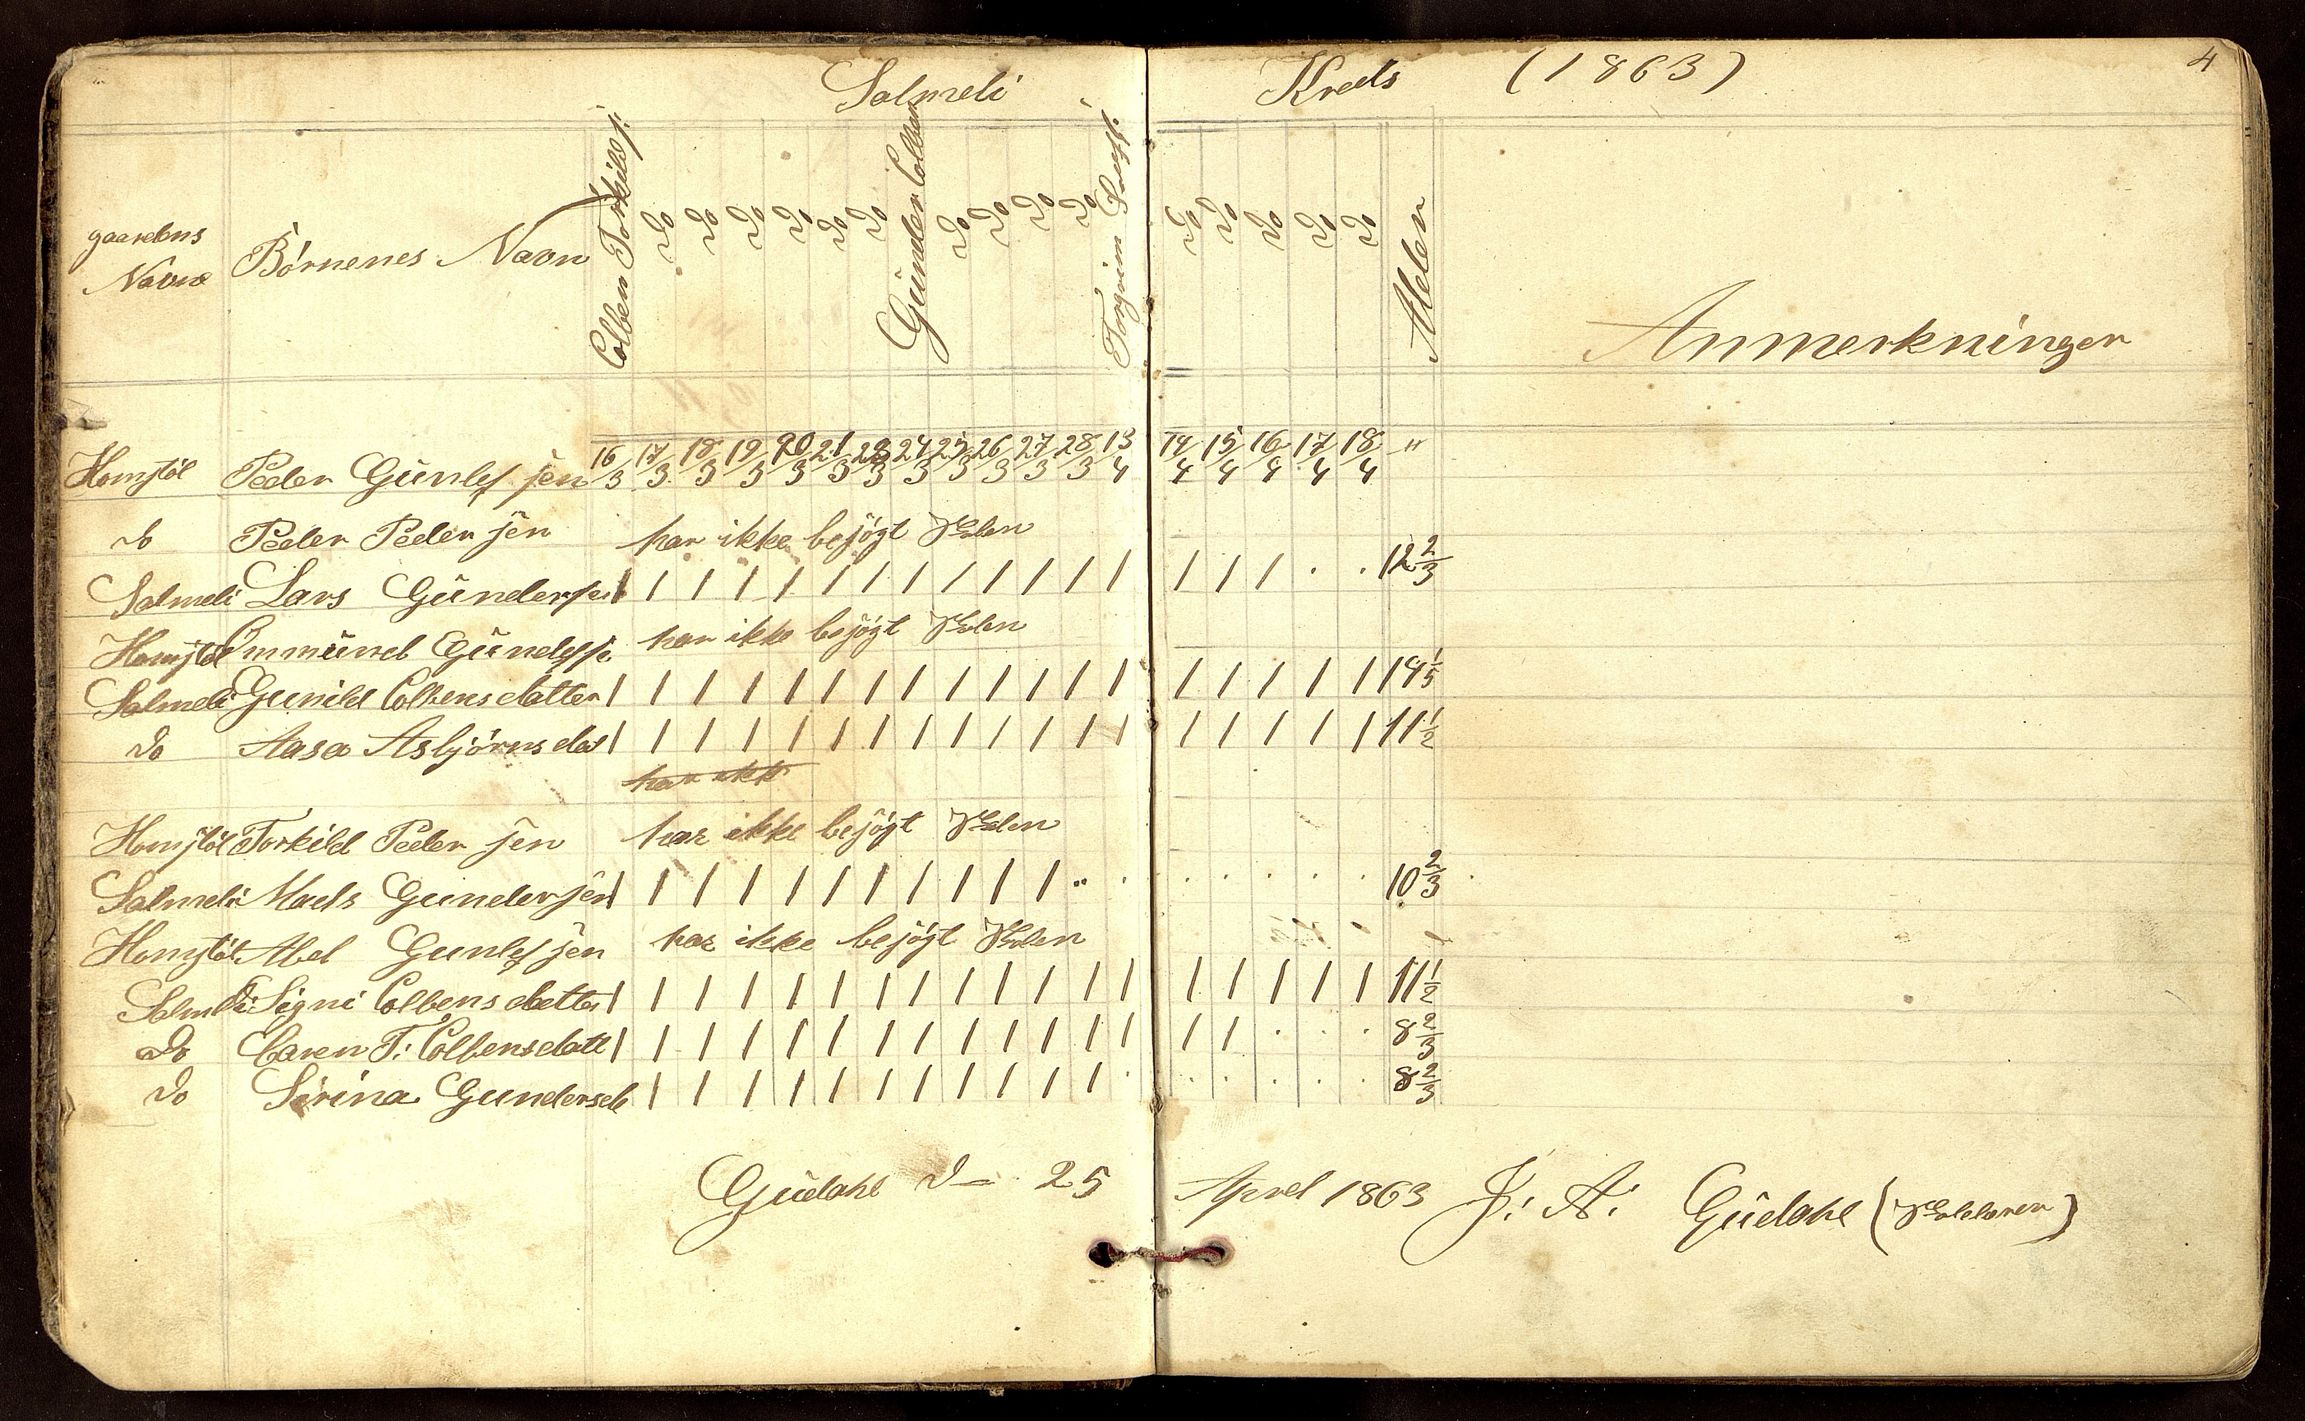 Salmeli Kreds (1863) 4
gaardens Navne Børnenes Navn Colben Torkilds s: Do Do Do Do Do Do Gunder Colbens Do Do Do Do Torgrim Do Do Do Do Do Alder Anmerkninger
16/3 17/3 18/3 19/3 20/3 21/3 23/3 24/3 25/3 26/3 27/3 28/3 13/4 14/4 15/4 16/4 17/4 18/4 "
Homstøl Peder Gunlefsen
do Peder Pedersen har ikke besøgt Skolen
Salmeli Lars Gundersen / / / / / / / / / / / / / / / / . . 12 2/3
Homstøl Ommund Gunlefs har ikke besøgt Skolen
Salmeli Gunild Colbensdatter / / / / / / / / / / / / / / / / / / 14 1/5
do Aasa Asbjørnsdat / / / / / / / / / / / / / / / / / / 11 1/2
har ikk
Homstøl Torkild Pedersen har ikke besøgt Skolen
Salmeli Mads Gundersen / / / / / / / / / / / .. . . . . . . 10 2/3
Homstøl Abel Gunlefsen har ikke besøgt Skolen
Salmeli Signi Colbensdatter / / / / / / / / / / / / / / / / / / 11 1/2
Do Caren T: Colbensdatt / / / / / / / / / / / / / / / . . . 8 2/3
Do Sørina Gundersd / / / / / / / / / / / . . . . . . 8 2/3
Gudahl d— 25 April 1863 J: A: Gudahl (Skolelærer)